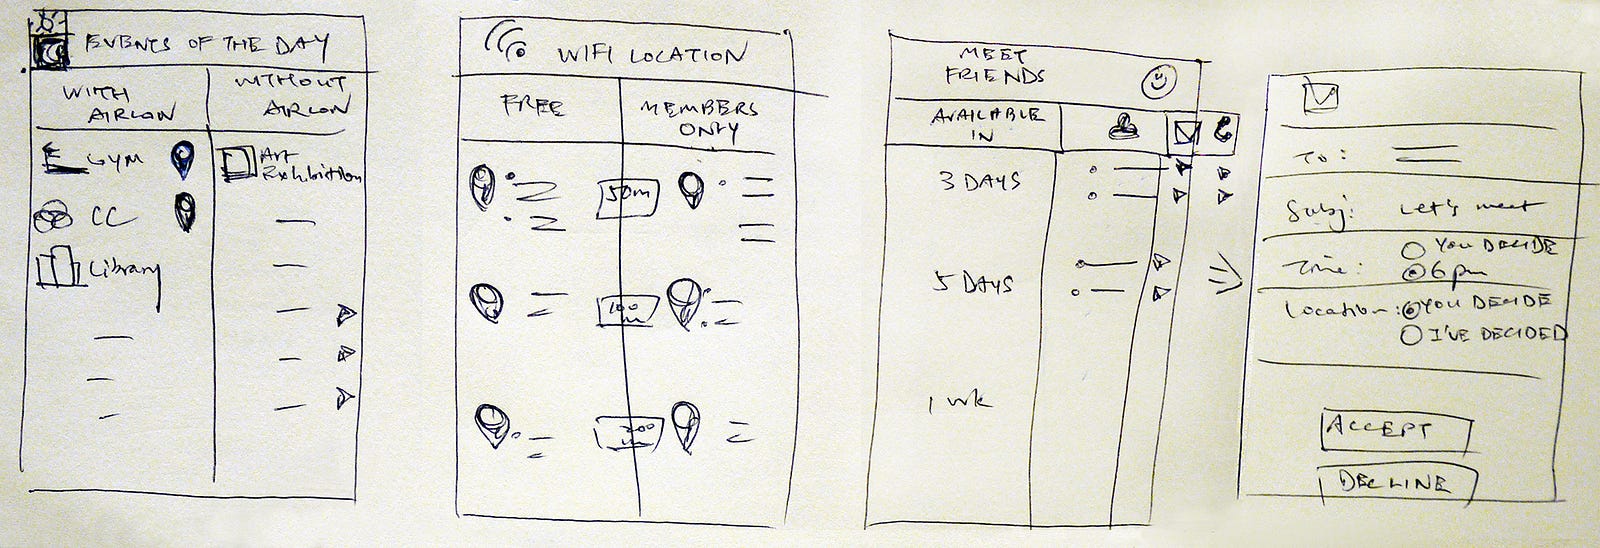 EVENTS OF THE DAY
WITH
AIRCON
WITHOUT
AIRCON
GYM
CC
Library
Art
Exhibition
WIFI LOCATION
FREE
MEMBERS
ONLY
50m
100
m
200
m
MEET
FRIENDS
AVAILABLE
IN
3 DAYS
5 DAYS
1 wk
To:
Subj: Let's meet
Time: YOU DECIDE
6pm
Location: YOU DECIDE
I'VE DECIDED
ACCEPT
DECLINE